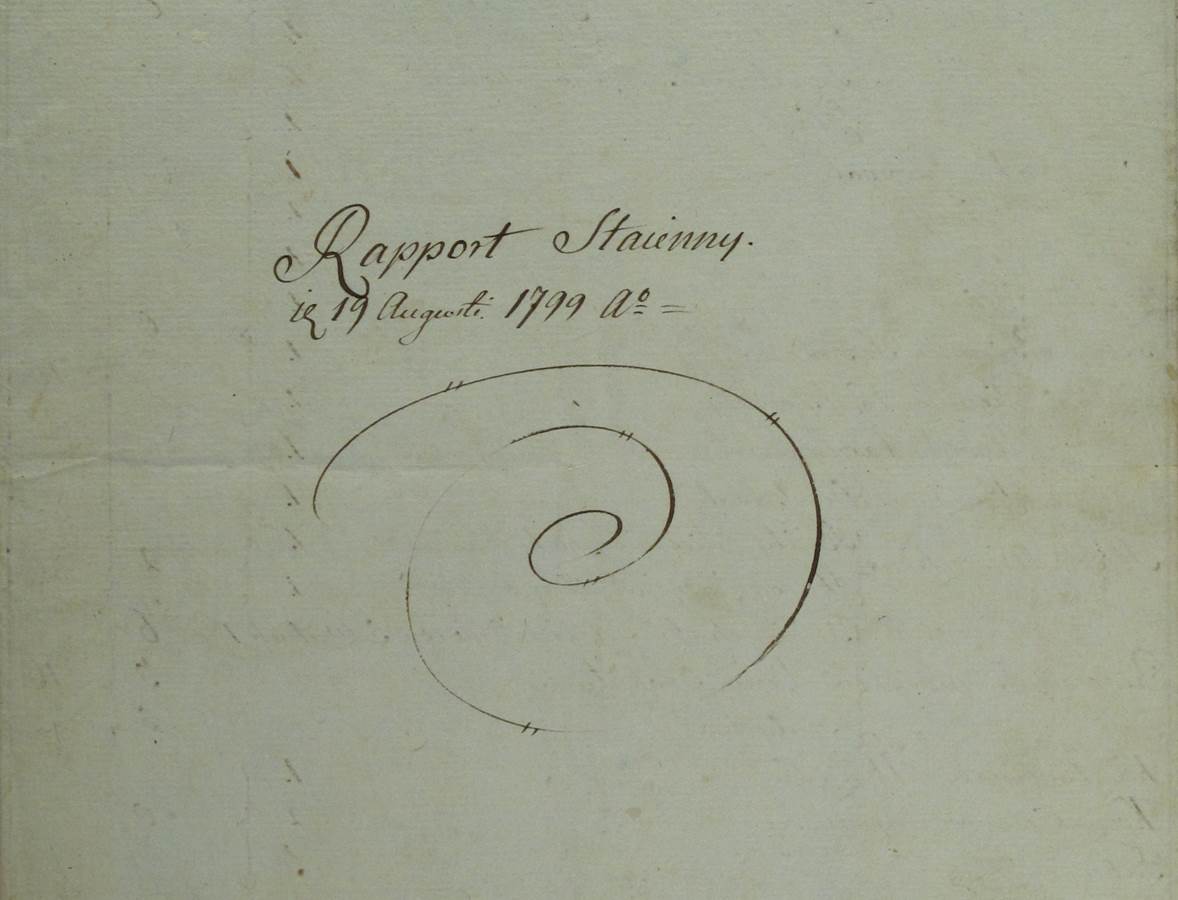 Rapport Staienny.
19 Augusti. 1799 Aº =